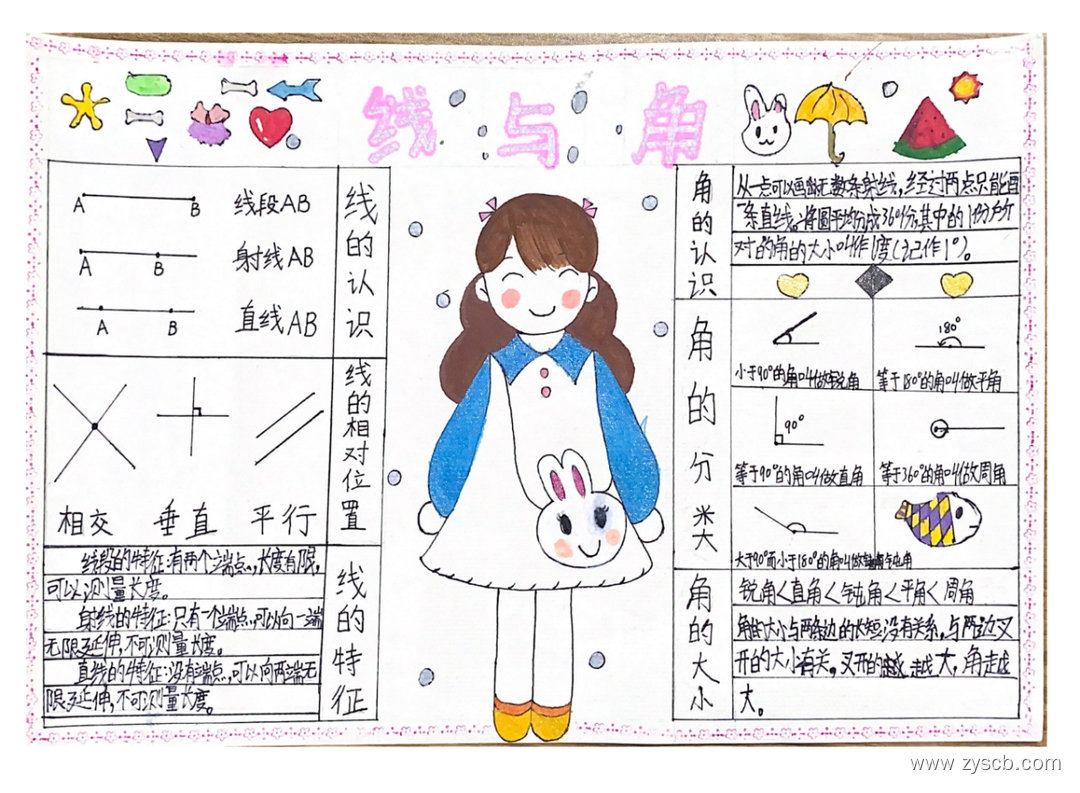 线与角
A B 线段AB
A B 射线AB
A B 直线AB
线的认识
相交 垂直 平行
线的相对位置
线段的特征:有两个端点,长度有限,
可以测量长度。
射线的特征:只有一个端点,可以向一端
无限延伸,不可测量长度。
直线的特征:没有端点,可以向两端无
限延伸,不可测量长度。
线的特征
角的认识
从一点可以画出无数条射线,经过两点只能画
一条直线。将圆平均分成360份,其中的1份所
对的角的大小叫作1度(记作1°)。
角的分类
180°
小于90°的角叫做锐角
等于180°的角叫做平角
90°
等于90°的角叫做直角
等于360°的角叫做周角
大于90°而小于180°的角叫做钝角
角的大小
锐角<直角<钝角<平角<周角
角的大小与两条边的长短没有关系,与两边叉
开的大小有关。叉开的越大,角越
大。
www.zyscb.com